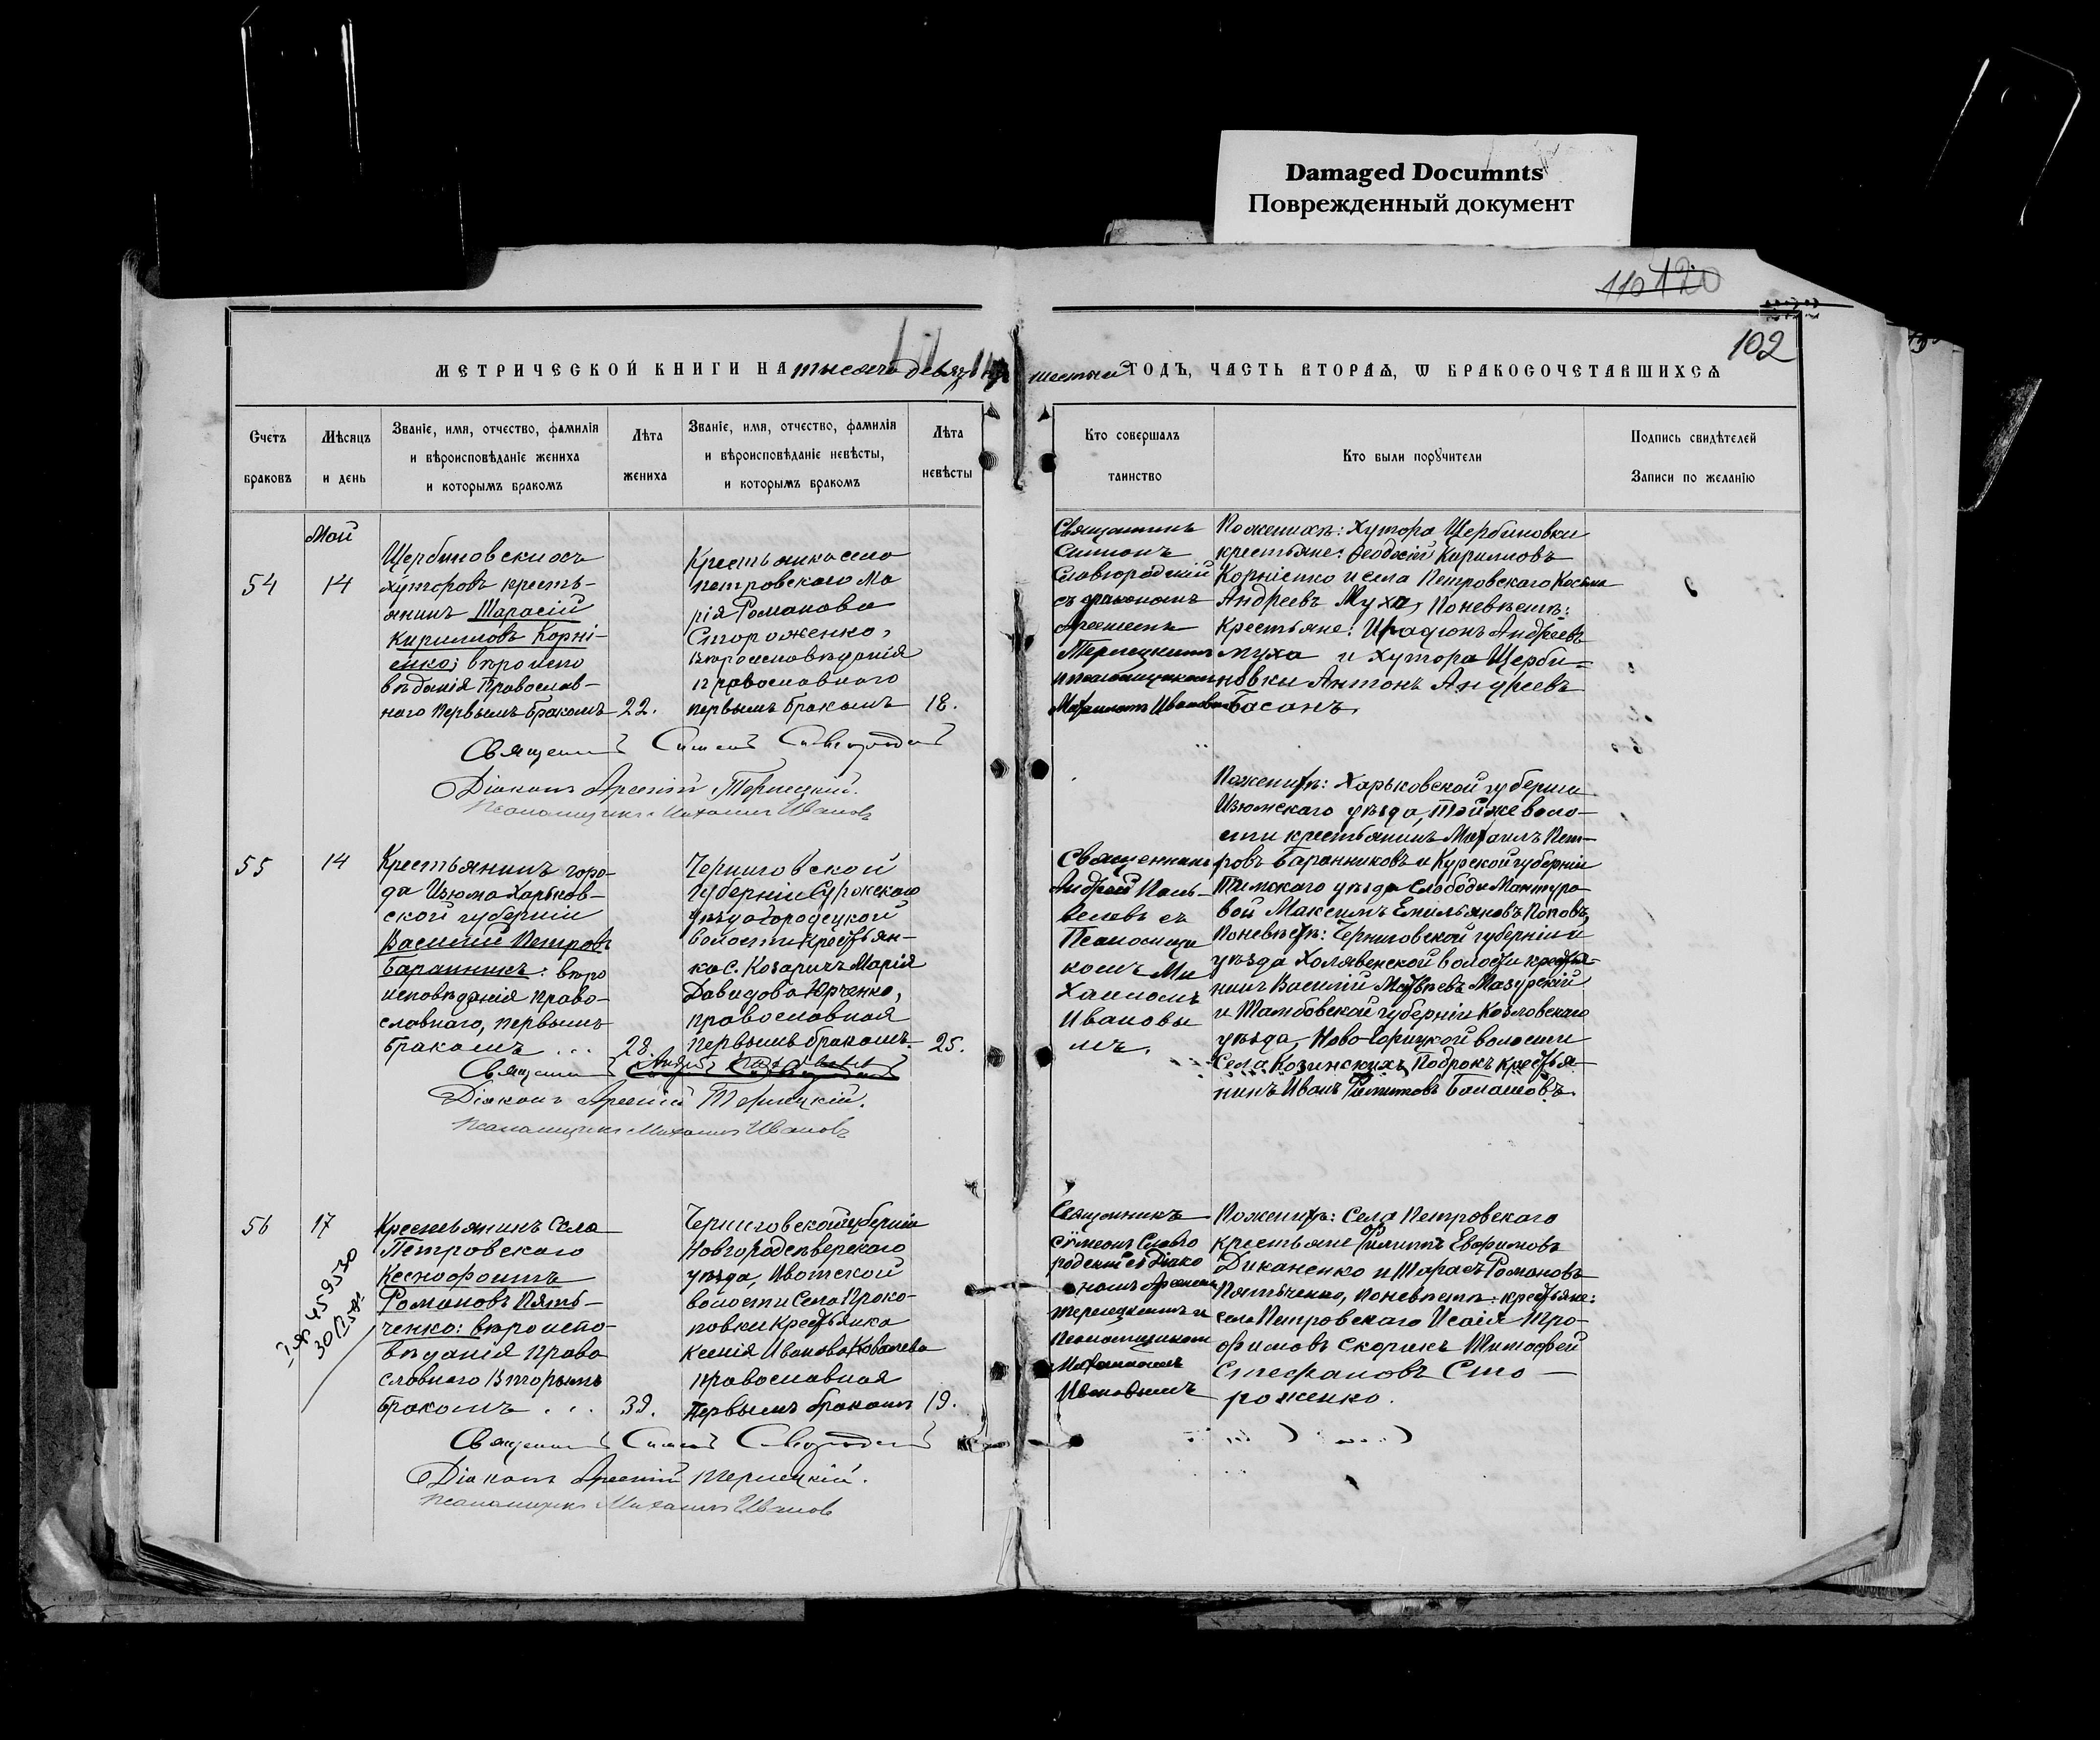 Damaged Documnts
Поврежденный документ
110 120
102
МЕТРИЧЕСКОЙ КНИГИ НА тысяча девять
шестый ГОДЪ, ЧАСТЬ ВТОРАЯ, Ѡ БРАКОСОЧЕТАВШИХСЯ
Счетъ браковъ
Мѣсяцъ и день
Званіе, имя, отчество, фамилія
и вѣроисповѣданіе жениха
и которымъ бракомъ
Лѣта жениха
Званіе, имя, отчество, фамилія
и вѣроисповѣданіе невѣсты,
и которымъ бракомъ
Лѣта невѣсты
Кто совершалъ
таинство
Кто были порꙋчители
Подпись свидѣтелей
Записи по желанію
Май
54
14
Щербиновскихъ
хуторовъ кресть-
янинъ Тарасій
Кириловъ Корні-
енко; вѣроиспо
вѣданія Православ-
наго первымъ бракомъ
22.
Крестьянка села
Петровскаго Ма
рія Романова
Стороженко,
вѣроисповѣданія
православнаго
первымъ бракомъ
18.
Священникъ
Симеонъ
Славгородскій
съ діакономъ
Арсеніемъ
Терлецкимъ
и псаломщикомъ
Михаиломъ Ивановымъ
Поженихѣ: Хутора Щербиновки
крестьяне: Феодосій Кириловъ
Корніенко и села Петровскаго Косьма
Андреевъ Муха, Поневѣстѣ:
Крестьяне: Иродіонъ Андреевъ
Муха и хутора Щерби-
новки Антонъ Андреевъ
Басанъ.
Священникъ Симеонъ Славгородскій
Діаконъ Арсеній Терлецкій.
Псаломщикъ Михаилъ Ивановъ
55
14
Крестьянинъ горо-
да Изюма Харьков-
ской губерніи
Василій Петровъ
Баранникъ: вѣро
исповѣданія право-
славнаго, первымъ
бракомъ . . .
28.
Черниговской
губерніи Суражскаго
уѣзда Городецкой
волости крестьян-
ка С. Козаричъ Марія
Давидова Юрченко,
православная
первымъ бракомъ.
25.
Священникъ
Андрей
съ
Псаломщи
комъ Ми
хаиломъ
Ивановы
мъ.
Поженихѣ: Харьковской губерніи
Изюмскаго уѣзда, тойже воло-
сти крестьянинъ Михаилъ Пет-
ровъ Баранниковъ и Курской губерніи
Тимскаго уѣзда Слободы Мантуро-
вой Максимъ Емильяновъ Поповъ,
Поневѣстѣ: Черниговской губерніи и
уѣзда Холявенской волости крестья-
нинъ Василій Матвѣевъ Мазурскій
и Тамбовской губерніи Козловскаго
уѣзда, Ново-Горицкой волости
Села Козинскихъ Подрокъ крестья-
нинъ Иванъ Филиповъ Балашовъ.
Священникъ Андрей
Діаконъ Арсеній Терлецкій.
Псаломщикъ Михаилъ Ивановъ
56
17
Крестьянинъ Села
Петровскаго
Ксенофонтъ
Романовъ Пять-
ченко: вѣроиспо-
вѣданія Право
славнаго Вторымъ
бракомъ . . .
39.
Черниговской губерніи
Новгородсѣверскаго
уѣзда, Ивотской
волости Села Проко-
повки Крестьянка
Ксенія Иванова Ковалева
православная
первымъ бракомъ
19.
Священникъ
Сѵмеонъ Славго
родскій съ Діако
номъ Арсеніемъ
Терлецкимъ и
Псаломщикомъ
Михаиломъ
Ивановымъ
Поженихѣ: Села Петровскаго
крестьяне Филипъ Евфимовъ
Диканенко и Тарасъ Романовъ
Пятьченко, поневѣстѣ: крестьяне:
села Петровскаго Исаія Тро-
фимовъ Скорикъ Тимофей
Стефановъ Сто-
роженко.
459530
Священникъ Симеонъ Славгородскій
Діаконъ Арсеній Терлецкій.
Псаломщикъ Михаилъ Ивановъ